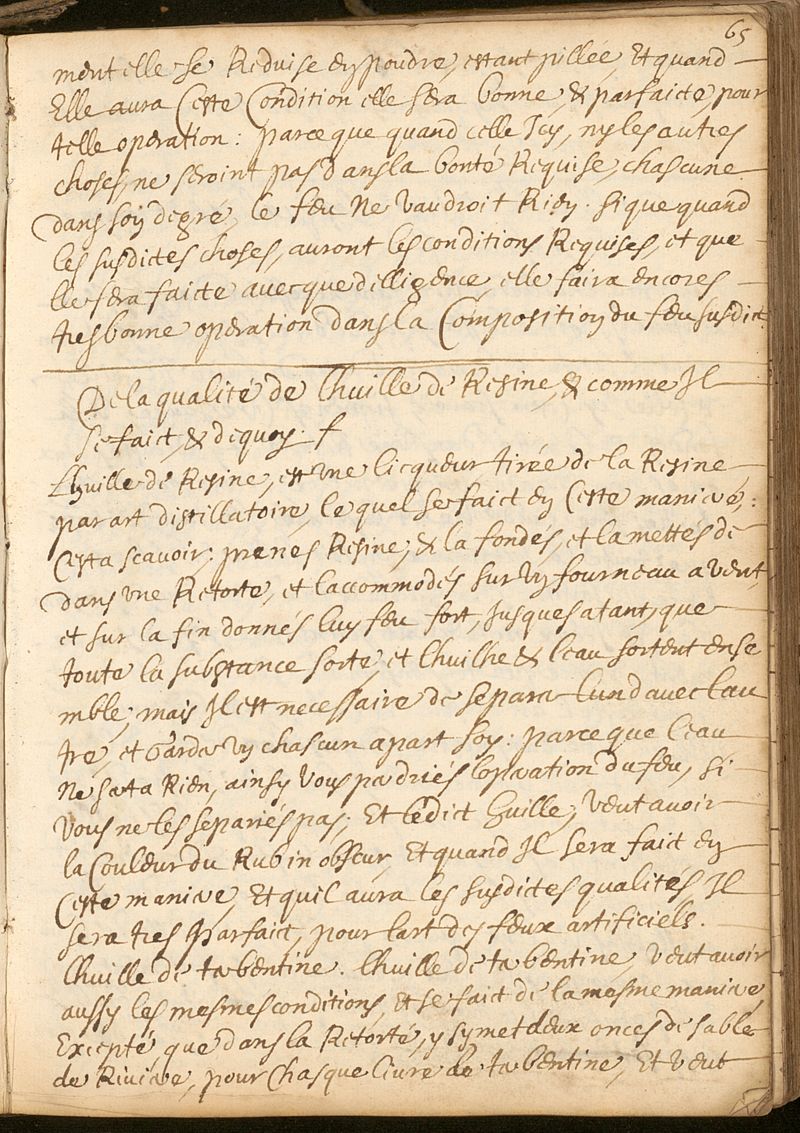 65
ment elle se Reduise en poudre, estant pillée, Et quand
Elle aura Ceste Condition elle sera bonne, & parfaicte, pour
telle operation: parce que quand celle Icy, ny les autres
choses, ne seroint pas dans la bonté Requise, chascune
dans son degré, le feu Ne vaudroit Rien. sique quand
les susdictes choses, auront les conditions Requises, et que
lle sera faicte avecque delligence, elle faira encores
tres bonne operation dans la Composition du feu susdict.
De la qualité de lhuille de Resine, & comme Il
se faict, & de quoy. f
Lhuille de Resine, est une licqueur tirée de la Resine
par art distillatoire, le quel se faict en Ceste maniere,:
Cest a scavoir; prenes Resine, & la fondés, et la mettés de
dans une Retorte, et laccommodés sur un fourneau a vent,
et sur la fin donnés luy feu fort, Jusques a tant, que
toute la substance sorte, et lhuilhe & leau sortent ense
mble; mais Il est necessaire de separer lund avec lau
tre, et Garder un chascun apart soy: parce que leau
Ne sert a Rien, ainsy vous perdriés loperation du feu, si
vous ne les separiés pas; Et ledict huille, veut avoir
la Couleur du Rubin obscur, Et quand Il sera faict en
Ceste maniere, Et quil aura les susdictes qualités, Il
sera tres parfaict, pour lart des feux artificiels.
lhuille de terbentine. lhuille de terbentine, veut avoir
aussy les mesmes conditions, et se faict de la mesme maniere,
Excepté, que dans la Retorté, y sy met deux onces de sable
de Riviere, pour Chasque livre de terbentine, Et veut